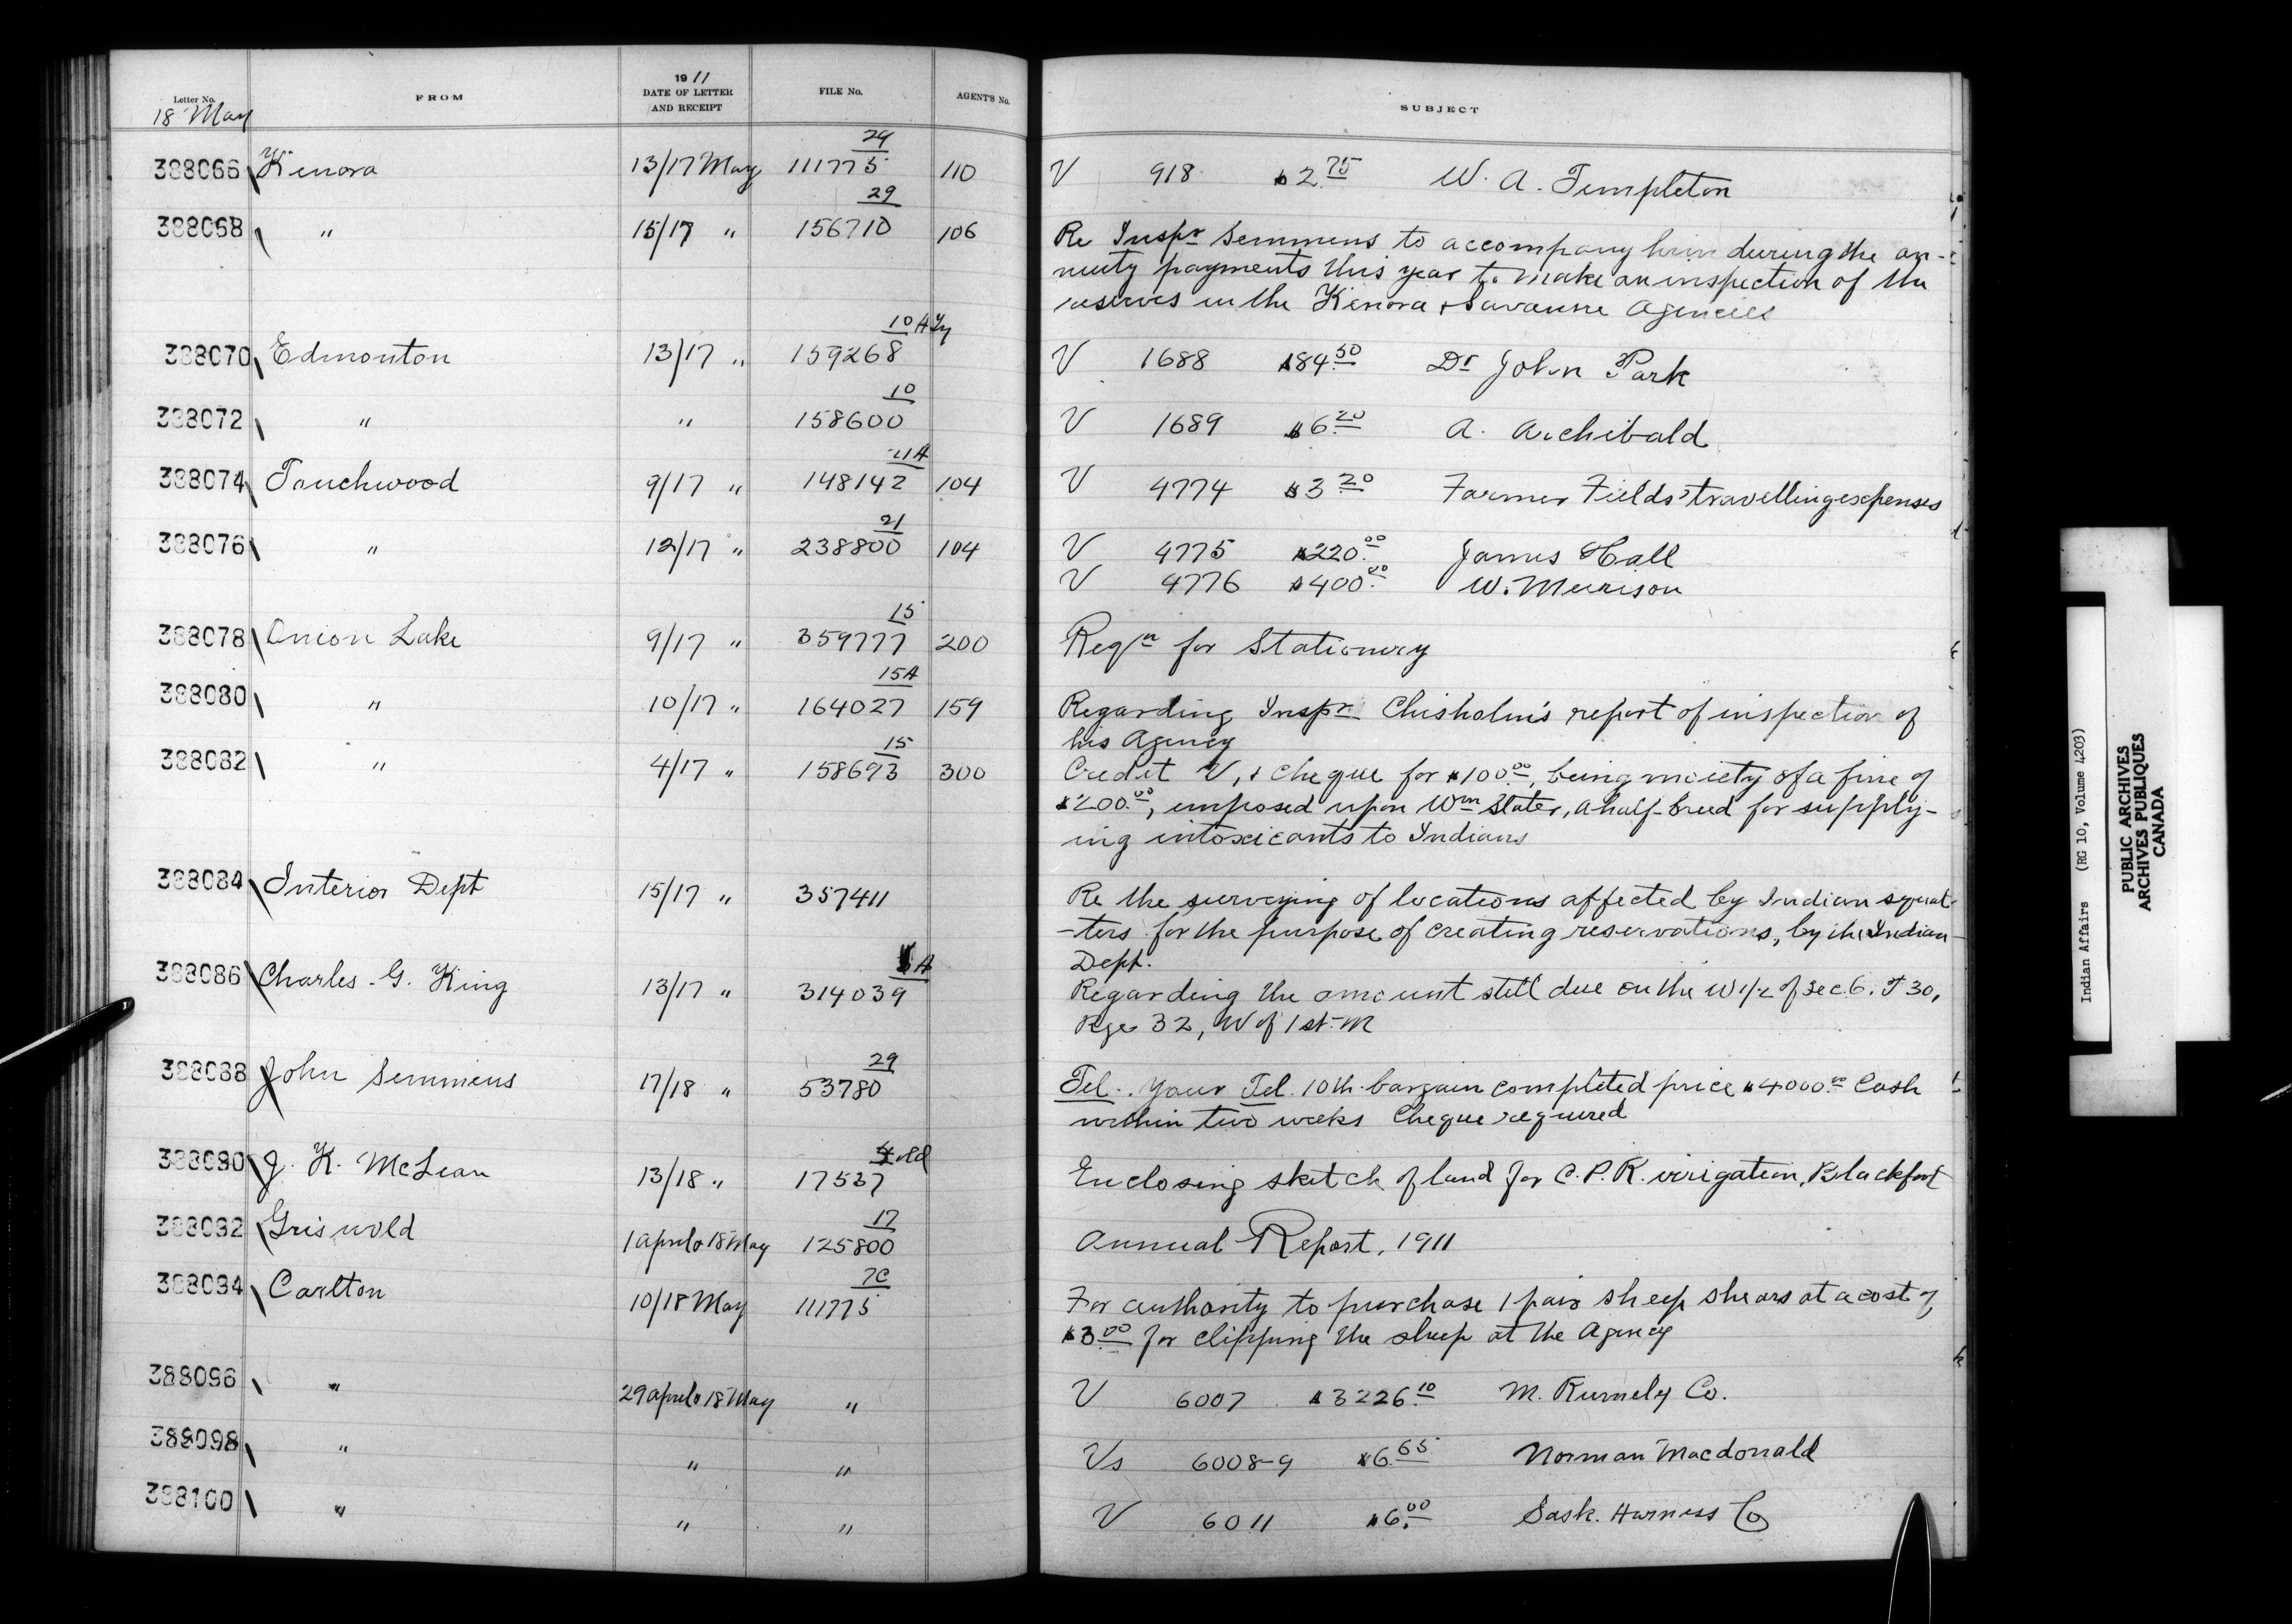 Letter No. FROM 1911 DATE OF LETTER AND RECEIPT FILE No. AGENT'S No. SUBJECT
18 May
388066 Kenora 13/17 May 29 111775 110 V 918 $2.75 W. A. Templeton
388068 " 15/17 " 29 156710 106 Re Inspr Semmens to accompany him during the an-
nuity payments this year to make an inspection of the
reserves in the Kenora & Savanne Agencies
388070 Edmonton 13/17 " 10 159268 V 1688 $84.50 Dr John Park
388072 " " 10 158600 V 1689 $6.20 A. Archibald
388074 Touchwood 9/17 " 11A 148142 104 V 4774 $3.20 Farmer Fields' travelling expenses
388076 " 12/17 " 21 238800 104 V 4775 $220.00 James Hall
V 4776 $400.00 W. Murison
388078 Onion Lake 9/17 " 15 359777 200 Reqn for Stationery
388080 " 10/17 " 15A 164027 159 Regarding Inspr Chisholm's report of inspection of
his Agency
388082 " 4/17 " 15 158693 300 Credit V, & cheque for $100.00, being moiety of a fine of
$200.00, imposed upon Wm Slater, a half-breed for supply-
ing intoxicants to Indians
388084 Interior Dept 15/17 " 357411 Re the surveying of locations affected by Indian squat-
-ters for the purpose of creating reservations, by the Indian
Dept.
388086 Charles G. King 13/17 " A 314039 Regarding the amount still due on the W 1/2 of Sec. 6. T 30,
Rge 32, W of 1st M
388088 John Semmens 17/18 " 29 53780 Tel. Your Tel. 10th bargain completed price $4000.00 Cash
within two weeks Cheque required
388090 J. K. McLean 13/18 " 17537 Enclosing sketch of land for C.P.R. irrigation, Blackfoot
388092 Griswold 1 April & 18 May 17 125800 Annual Report, 1911
388094 Carlton 10/18 May 7C 111775 For authority to purchase 1 pair sheep shears at a cost of
$3.00 for clipping the sheep at the Agency
388096 " 29 April & 18 May " V 6007 $3226.10 M. Rumely Co.
388098 " " " Vs 6008-9 $6.65 Norman Macdonald
388100 " " " V 6011 $6.00 Sask. Harness Co
Indian Affairs (RG 10, Volume 4203)
PUBLIC ARCHIVES
ARCHIVES PUBLIQUES
CANADA